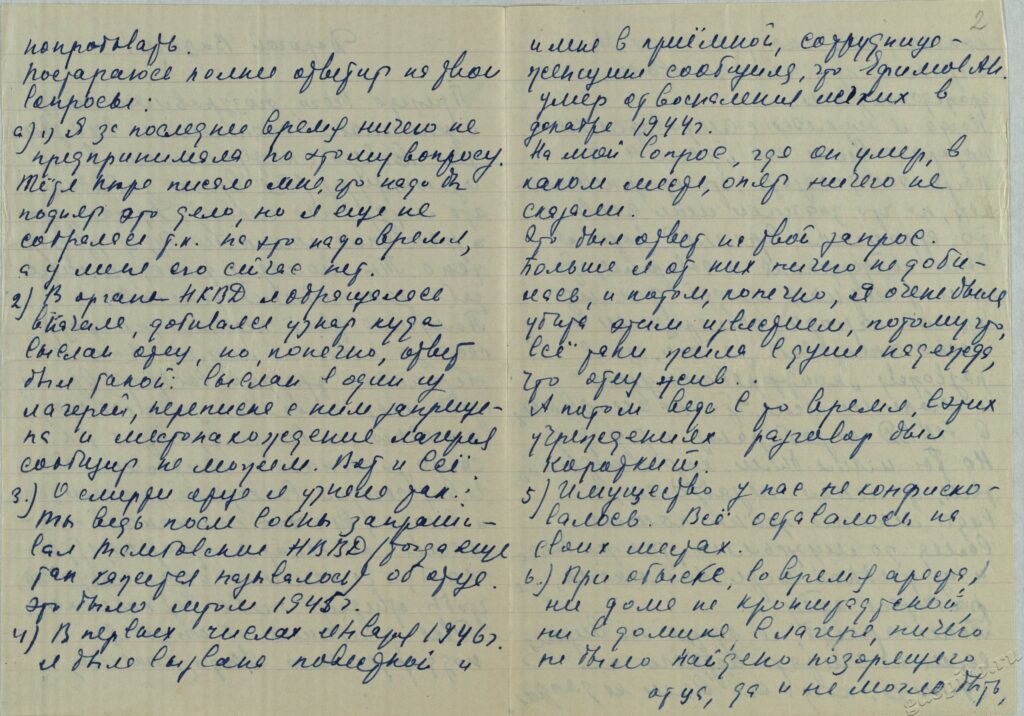 попробовать.
Постараюсь полнее ответить на твои
вопросы:
а) 1) Я за последнее время ничего не
предпринимала по этому вопросу.
Тётя Нюра писала мне, что надо бы
поднять это дело, но я еще не
собралась т.к. на это надо время,
а у меня его сейчас нет.
2) В органы НКВД я обращалась
вначале, добивалась узнать куда
выслан отец, но, конечно, ответ
был такой: выслан в один из
лагерей, переписка с ним запреще-
на и местонахождение лагеря
сообщить не можем. Вот и всё
3.) О смерти отца я узнала так:
Ты ведь после войны запраши-
вал Тамбовский НКВД (тогда еще
так кажется называлось) об отце.
Это было летом 1945 г.
4) В первых числах января 1946 г.
я была вызвана повесткой и
2
и мне в приёмной, сотрудница-
женщина сообщила, что Ефимов Ан.
умер от воспаления легких в
декабре 1944 г.
На мой вопрос, где он умер, в
каком месте, опять ничего не
сказали.
Это был ответ на твой запрос.
Больше я от них ничего не доби-
лась, и потом, конечно, я очень была
убита этим известием, потому что,
всё таки жила в душе надежда,
что отец жив...
А потом ведь в то время, в этих
учреждениях разговор был
короткий.
5) Имущество у нас не конфиско-
валось. Всё оставалось на
своих местах.
6.) При обыске, во время ареста,
ни дома на Кронштадтской,
ни в домике, в лагере, ничего
не было найдено позорящего
отца, да и не могло быть,